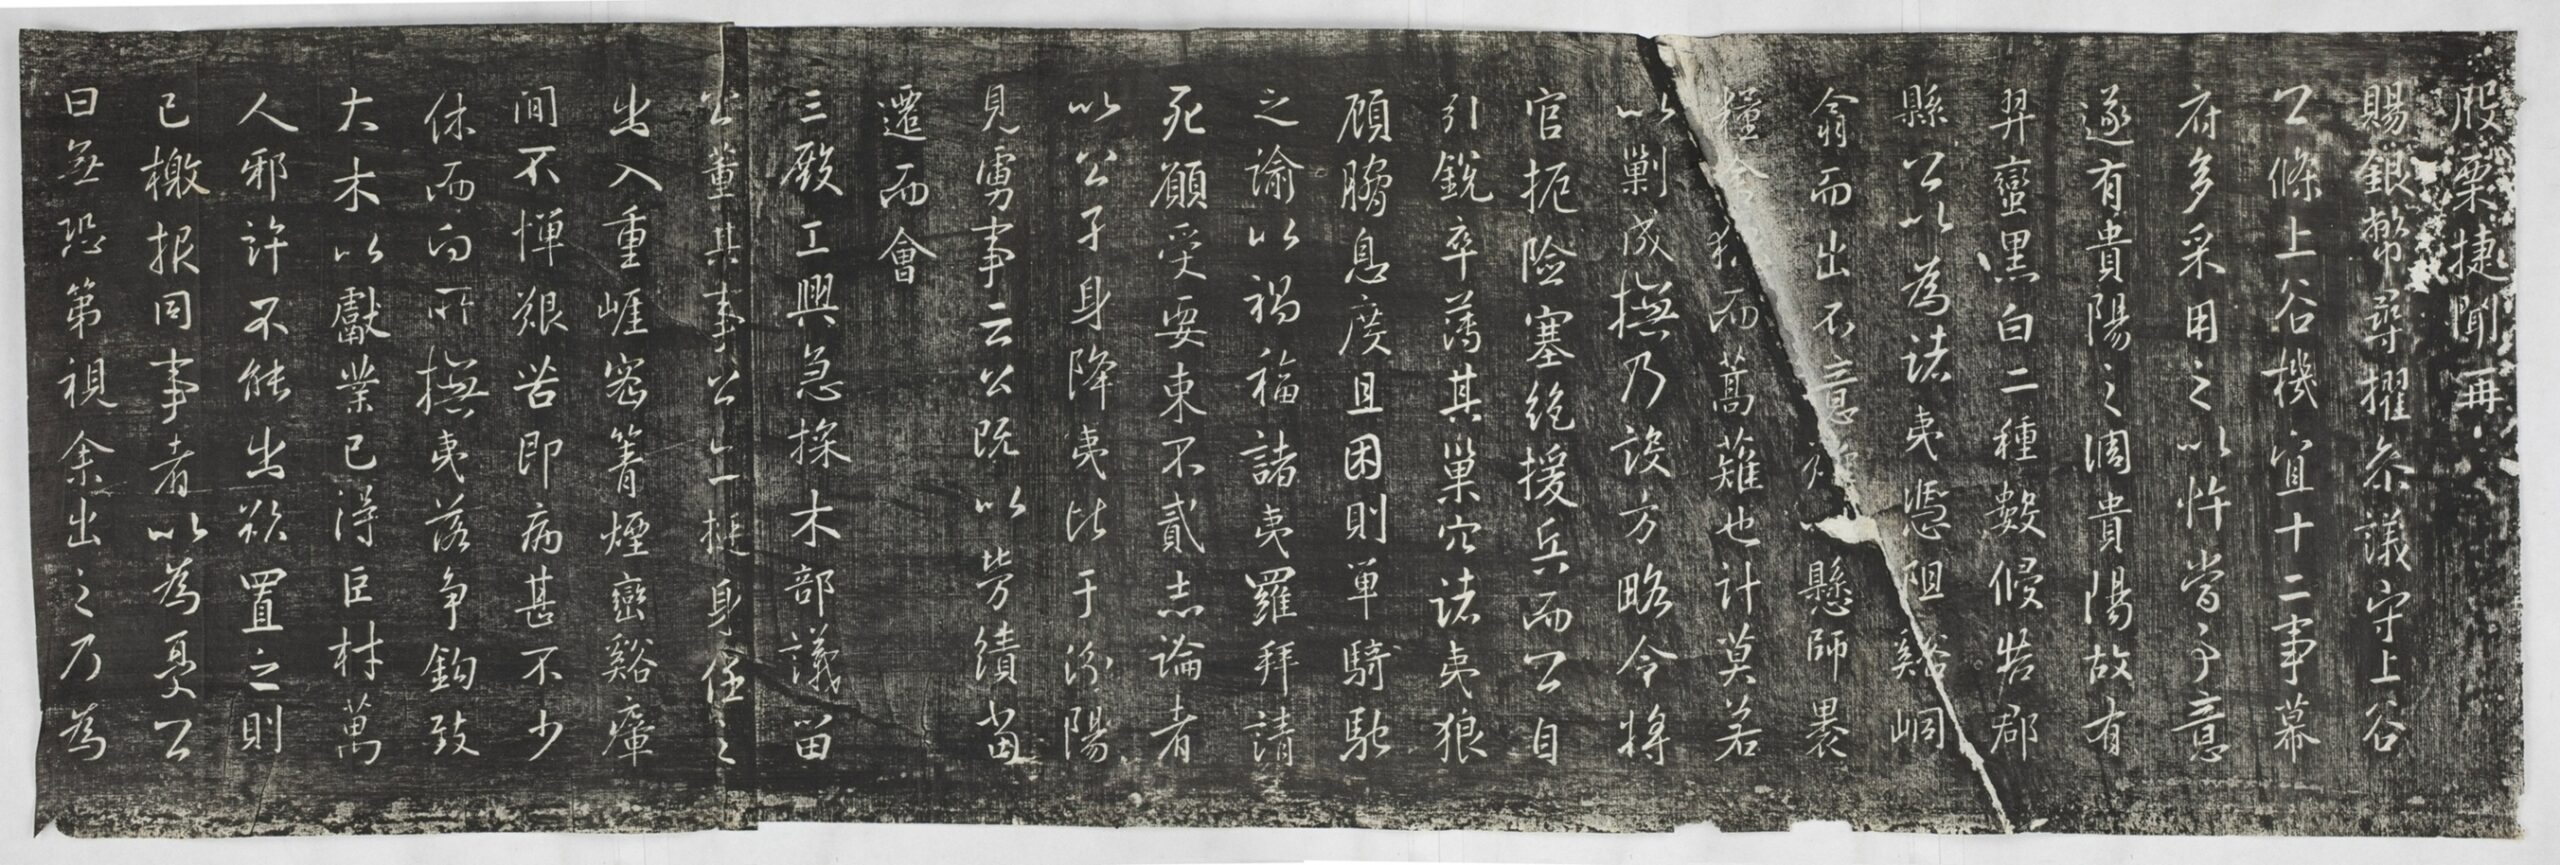 股栗捷聞再
賜銀幣尋擢參議守上谷
公條上谷機宜十二事幕
府多采用之以忤當事意
遂有貴陽之謫貴陽故有
羿蠻黑白二種數侵郡
縣公以為諸夷憑阻谿峒
翕而出不意懸師裹
糧而蒿薙也計莫若
以剿成撫乃設方略令將
官扼險塞絕援兵而公自
引銳卒蕩其巢穴諸夷狼
顧脅息度且困則單騎馳
之諭以禍福諸夷羅拜請
死願受要束不貳志論者
以公子身降夷比于汾陽
見虜事云公既以勞績當
遷而會
三殿工興急採木部議留
公董其事公亡一挺身任之
出入重崕密箐煙巒谿瘴
間不憚艱苦即病甚不少
休而向所撫夷落爭鉤致
大木以獻業已得臣材萬
人邪許不能出欲置之則
已檄報同事者以為憂公
曰無恐第視余出之乃為